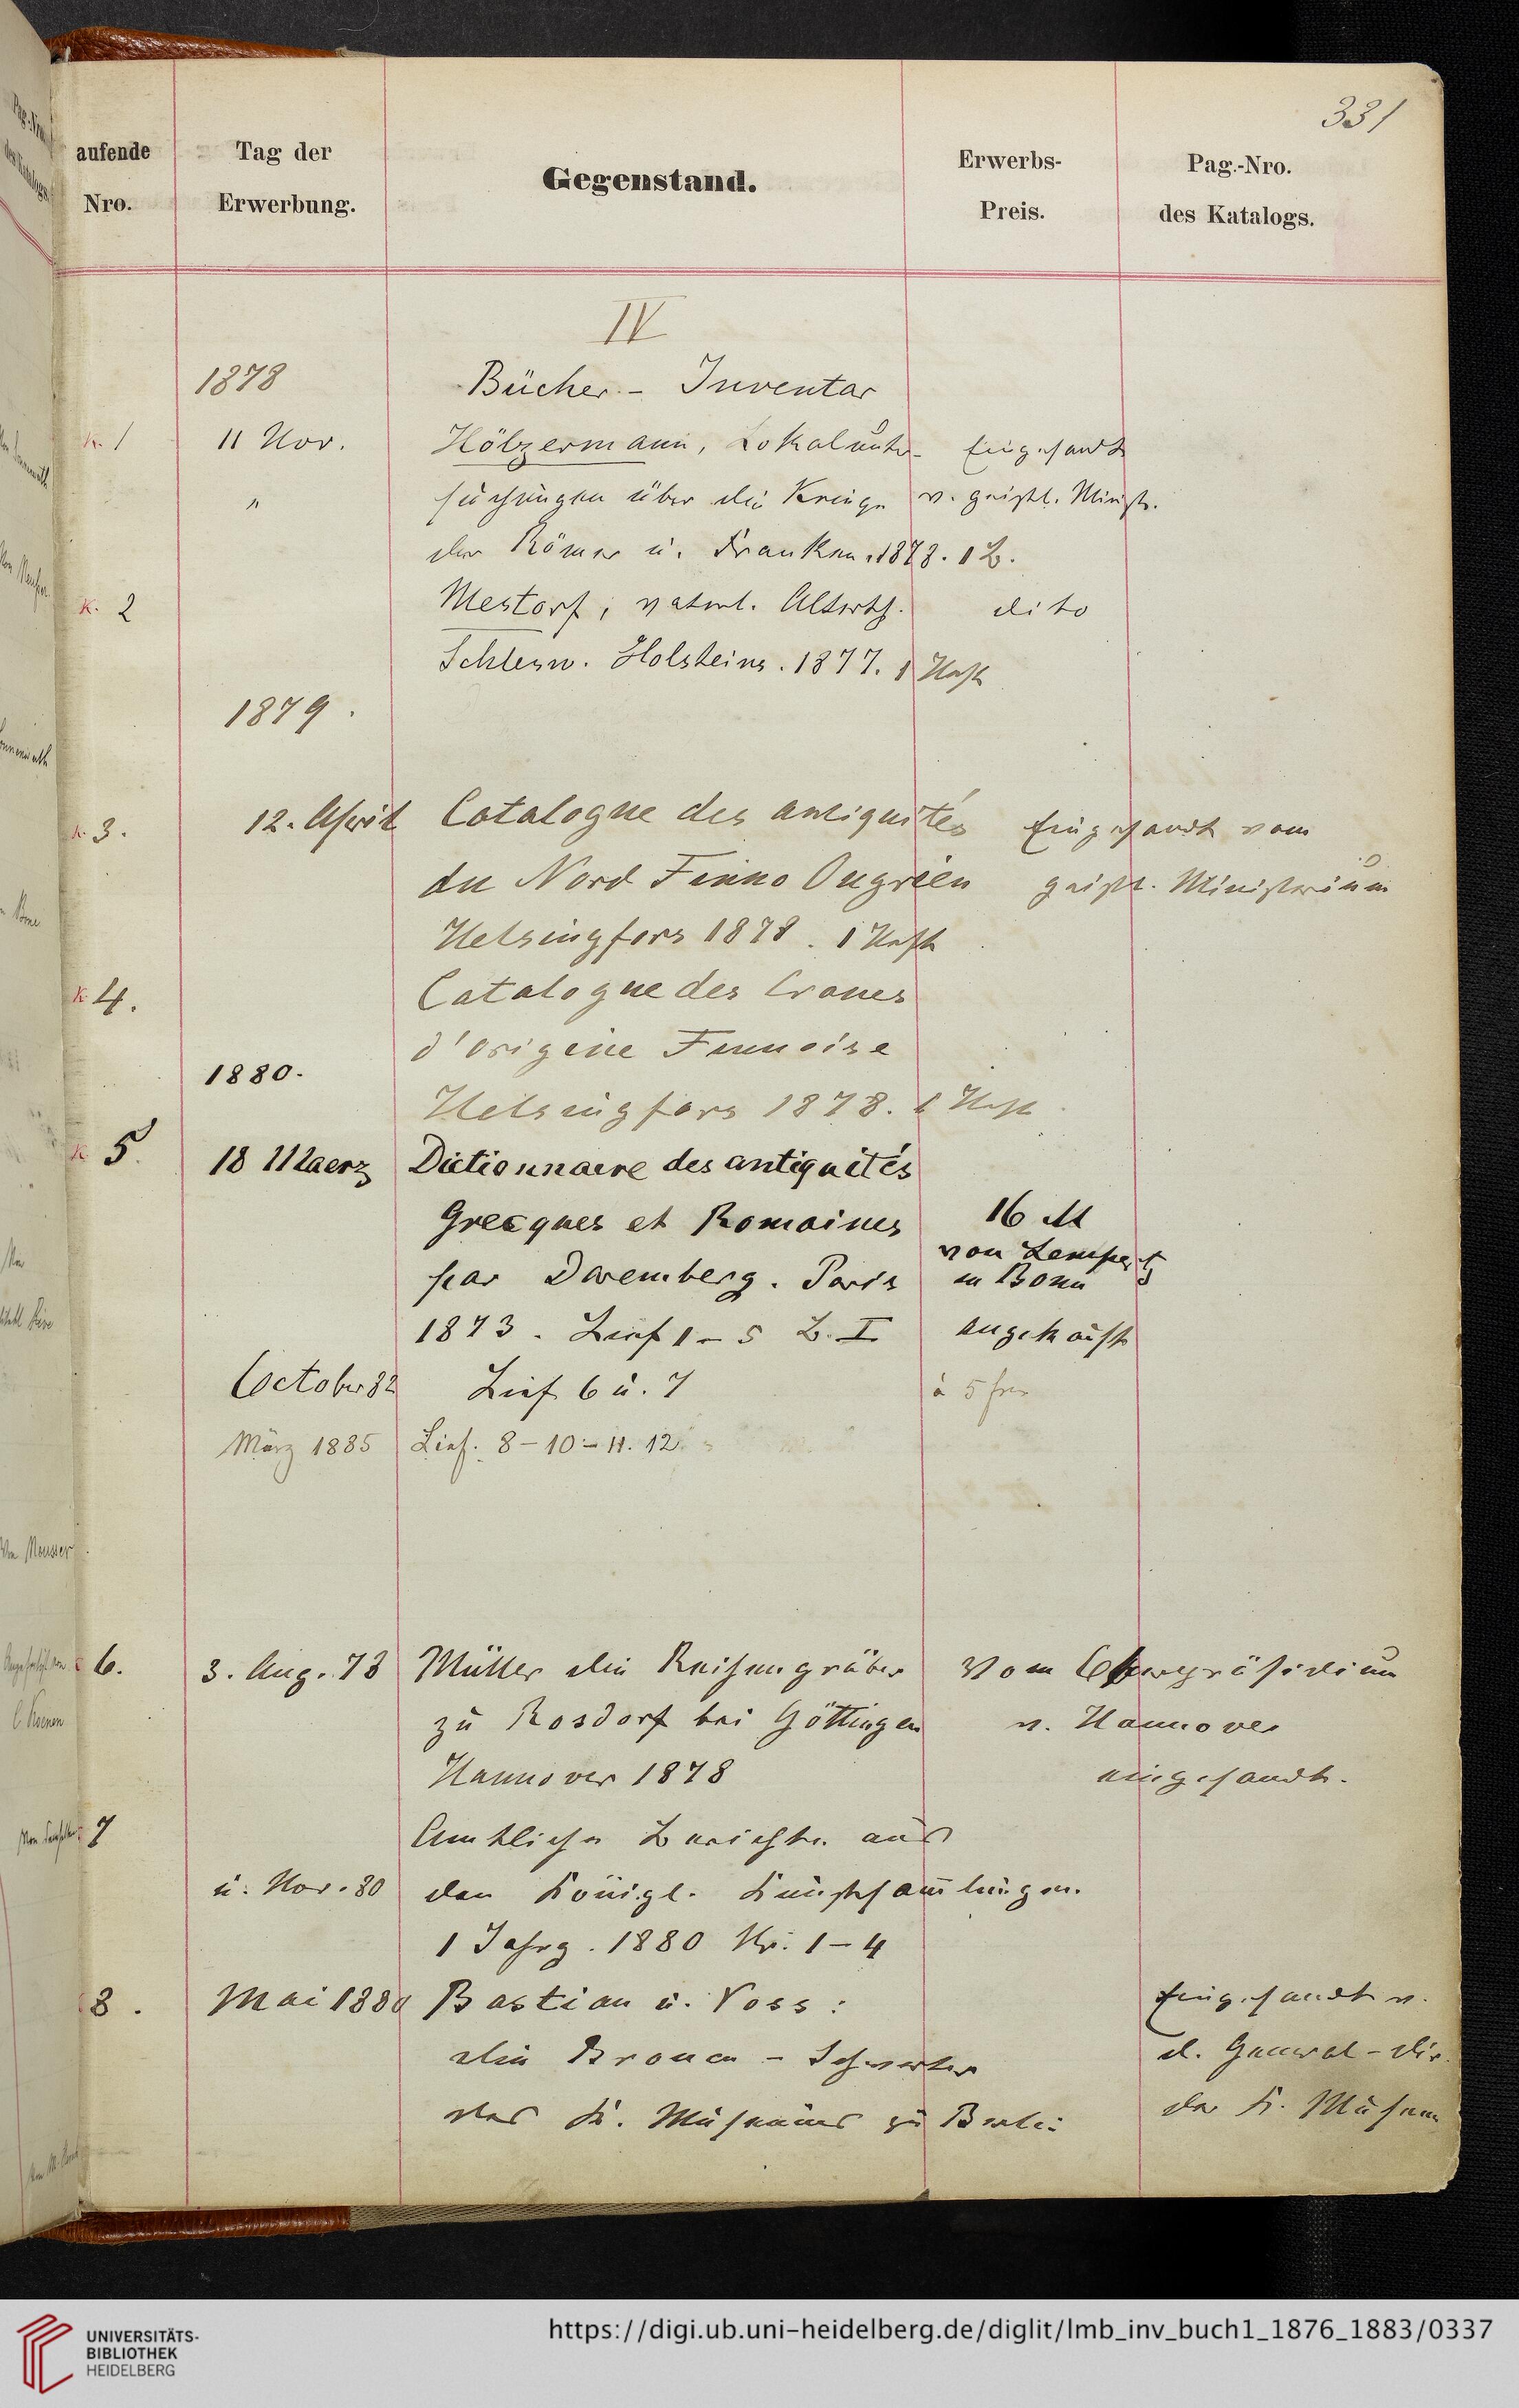 331
aufende
Nro.
Tag der
Erwerbung.
Gegenstand.
Erwerbs-
Preis.
Pag.-Nro.
des Katalogs.
IV
1878
Bücher - Inventar
K. 1 11 Nov. Hölzermann, Lokalunter- Eingesandt
" suchungen über die Kriege v. geistl. Minist.
der Römer u. Franken. 1878. 1 B.
K. 2 Mestorf, vaterl. Alterth. dito
Schlesw. Holsteins. 1877. 1 Heft
1879.
K. 3. 12. April Catalogue des antiquités Eingesandt vom
du Nord Finno Ougrien geistl. Ministerium
Helsingfors 1878. 1 Heft
K. 4. Catalogue des Cranes
d'origine Finnoise
1880.
Helsingfors 1878. 1 Heft
K 5. 18 Maerz Dictionnaire des antiquités
Grecques et Romaines 16 M
von Lempertz
par Daremberg. Paris in Bonn
1873. Lief 1-5 B. I angekauft
October 82 Lief 6 u. 7 à 5 frs
März 1885 Lief. 8-10 - 11. 12.
6. 3. Aug. 78 Müller die Reihengräber Vom Oberpräsidium
zu Rosdorf bei Göttingen v. Hannover
Hannover 1878 eingesandt.
7 Amtliche Berichte aus
u. Nov. 80 den Königl. Kunstsam̄lungen.
1 Jahrg. 1880 Nr. 1-4
8. Mai 1880 Bastian u. Voss: Eingesandt v.
die Bronce - Schwerter d. General-Dir.
des K. Museums zu Berlin der K. Museen
UNIVERSITÄTS-
BIBLIOTHEK
HEIDELBERG
https://digi.ub.uni-heidelberg.de/diglit/lmb_inv_buch1_1876_1883/0337